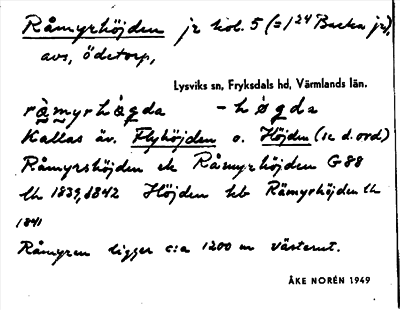 Råmyrhöjden jr kol. 5 (=1/24 Backa jr),
avs, ödetorp,
Lysviks sn, Fryksdals hd, Värmlands län.
rå̀myrhȧgda - hǿgda
Kallas äv. Flyhöjden o. Höjden (se d. ord.)
Råmyrshöjden ek Råmyrhöjden G 88
lh 1839, 1842 Höjden hb Råmyrhöjden lh
1841
Råmyren ligger c:a 1200 m västerut.
ÅKE NORÉN 1949